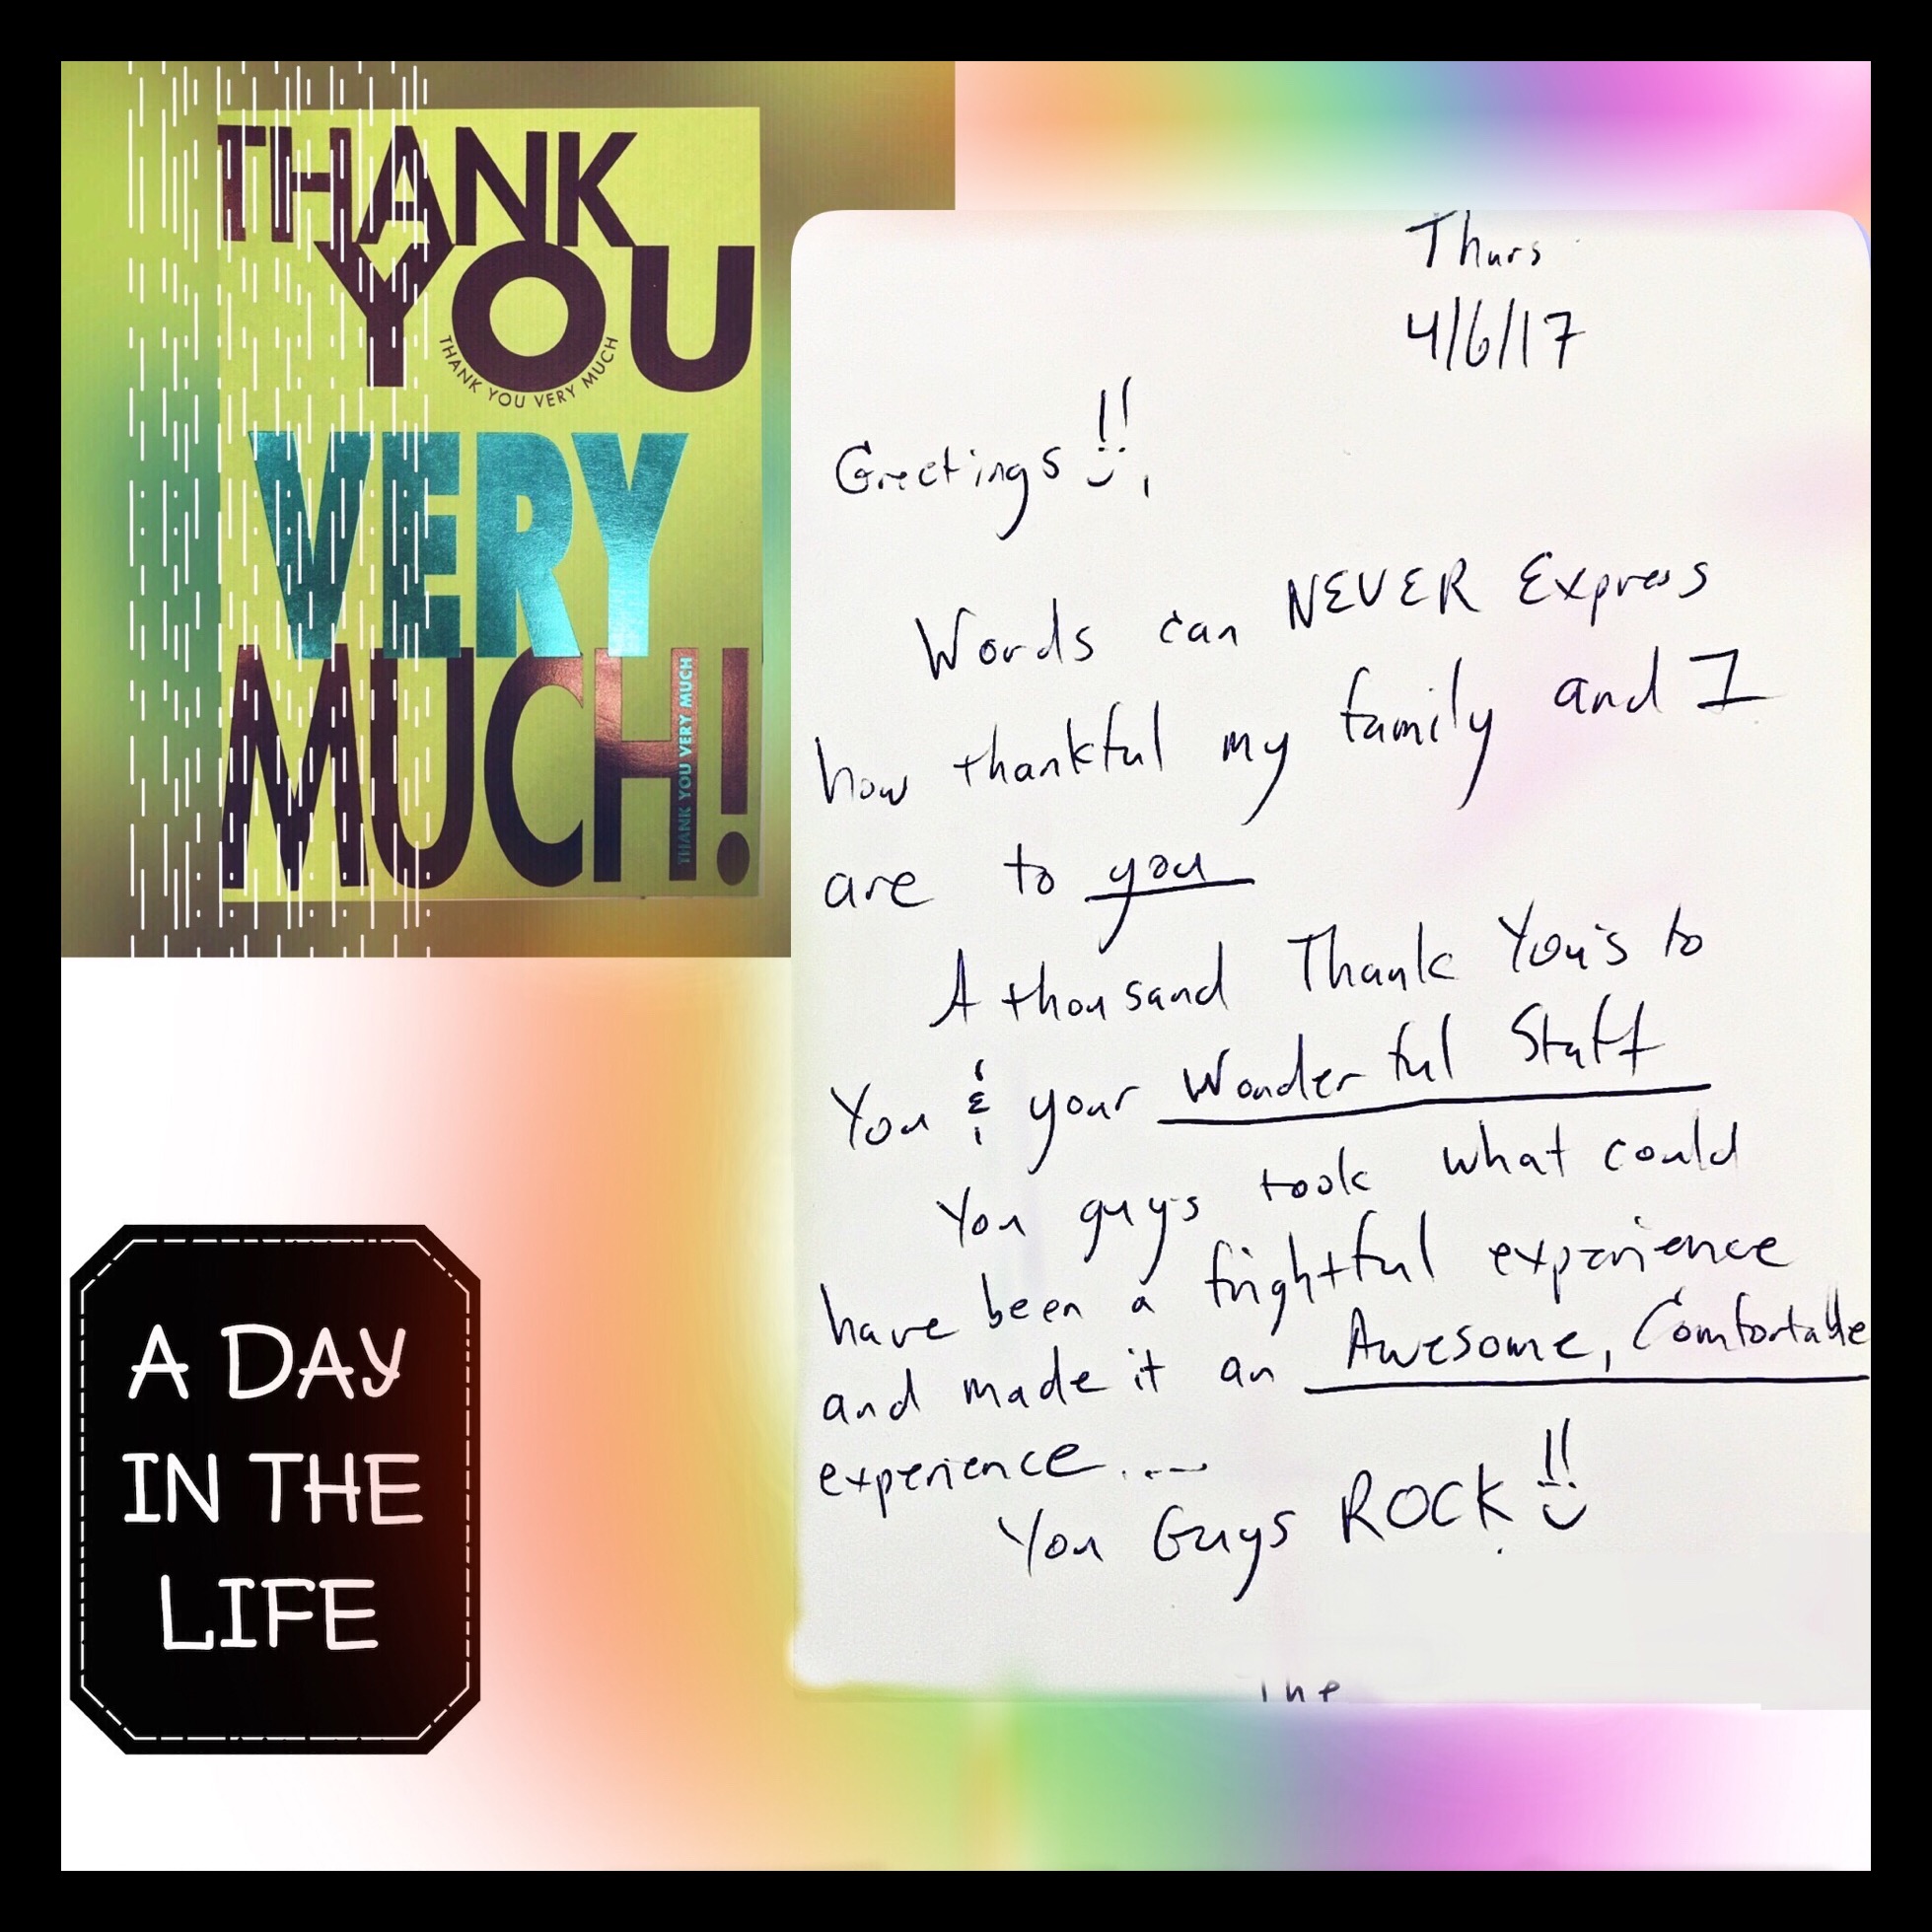 THANK
YOU
THANK YOU VERY MUCH
VERY
MUCH!
THANK YOU VERY MUCH
Thurs
4/6/17
Greetings!!,
Words can NEVER Express
how thankful my family and I
are to you
A thousand Thank You's to
You & your Wonderful Staff
You guys took what could
have been a frightful experience
and made it an Awesome, Comfortable
experience....
You Guys ROCK!!
The
A DAY
IN THE
LIFE